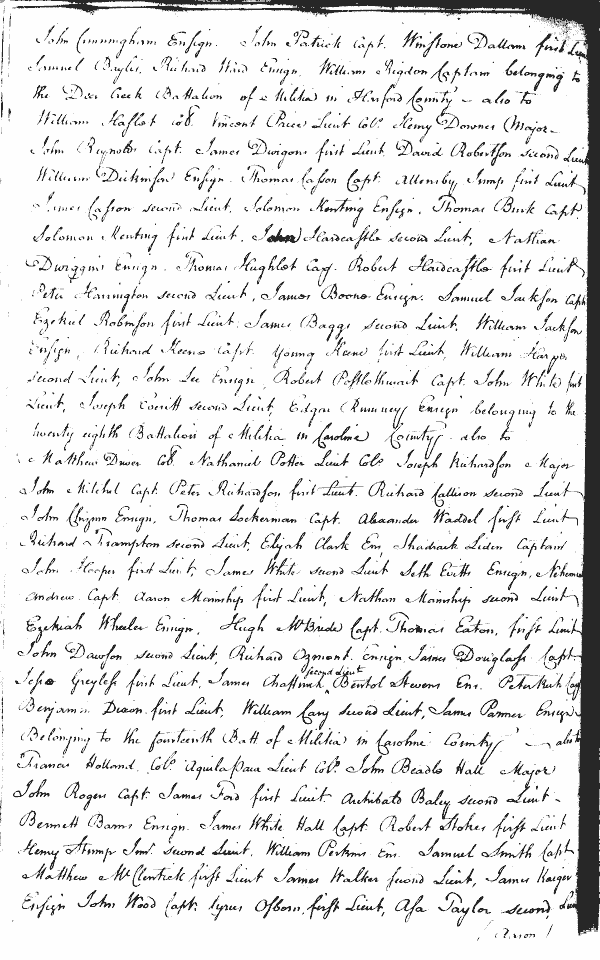 John Cunningham Ensign. John Patrick Capt. Winstone Dallam first Lieu
Samuel Bayles, Richard Ward Ensign, William Rigdon Captain belonging to
the Deer Creek Battalion of Militia in Harford County – also to
William Haslet Col. Vincent Price Lieut Col. Henry Downes Major –
John Reynolds Capt. James Dwigons first Lieut, David Robertson second Lieut
William Dickinson Ensign. Thomas Casson Capt. Allensby Jump first Lieut
James Casson second Lieut, Solomon Kenting Ensign, Thomas Burk Capt.
Solomon Kenting first Lieut, John Hardcastle second Lieut, Nathan
Dwiggins Ensign. Thomas Hughlet Cap. Robert Hardcastle first Lieut
Peter Harrington second Lieut, James Boone Ensign. Samuel Jackson Capt
Ezekiel Robinson first Lieut. James Baggs second Lieut, William Jackson
Ensign, Richard Keene Capt. Young Keene first Lieut, William Harper
second Lieut, John Lee Ensign, Robert Postlethwait Capt. John White first
Lieut, Joseph Everitt second Lieut, Edgar Rumney Ensign belonging to the
twenty eighth Battalion of Militia in Caroline County – also to
Matthew Driver Col. Nathaniel Potter Lieut Col. Joseph Richardson Major
John Mitchel Capt. Peter Richardson first Lieut. Richard Callison second Lieut
John Ensign, Thomas Lockerman Capt. Alexander Waddel first Lieut
Richard Frampton second Lieut, Elijah Clark Ens, Shadrack Liden Captain
John Hooper first Lieut, James White second Lieut Seth Evitts Ensign,
Andrew Capt. Aaron Mainship first Lieut, Nathan Mainship second Lieut
Ezekiah Wheeler Ensign, Hugh McBride Capt. Thomas Eaton, first Lieut
John Dawson second Lieut, Richard Ozment. Ensign James Douglass Capt.
Jesse Greyless first Lieut, James Chaffinch second Lieut Stevens Ens. Peter Rich Cap
Benjamin Dixon first Lieut, William Cary second Lieut, James Parmer Ensign
Belonging to the fourteenth Batt of Militia in Caroline County – also to
Francis Holland, Col. Aquila Paca Lieut Col. John Beadle Hall Major
John Rogers Capt. James Ford first Lieut. Archibald Baley second Lieut –
Bennett Barns Ensign. James White Hall Capt Robert Stokes first Lieut
Henry Stump Junr. second Lieut, William Perkins Ens. Samuel Smith Capt
Matthew McClentick first Lieut James Walker second Lieut, James
Ensign John Wood Capt. Cyrus Osborn, first Lieut, Asa Taylor second, Lieu
Aaron